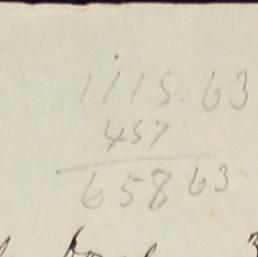 1115.63
457
65863